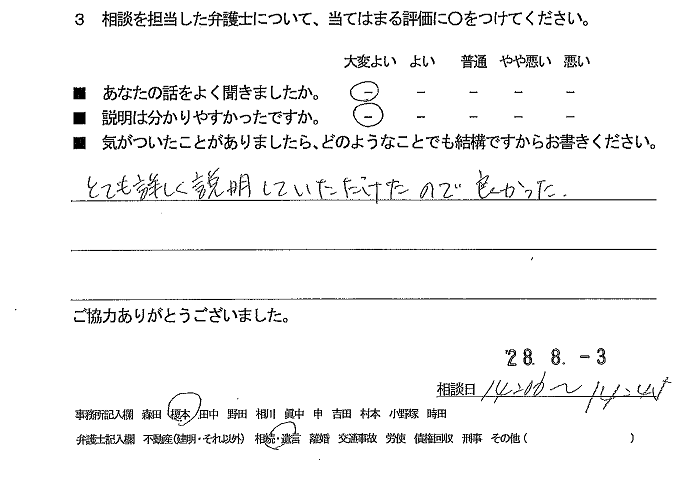 3 相談を担当した弁護士について、当てはまる評価に〇をつけてください。
大変よい よい 普通 やや悪い 悪い
■ あなたの話をよく聞きましたか。 － － － － －
■ 説明は分かりやすかったですか。 － － － － －
■ 気がついたことがありましたら、どのようなことでも結構ですからお書きください。
とても詳しく説明していただけたので良かった.
ご協力ありがとうございました。
'28. 8. -3
相談日 14:00〜14:45
事務所記入欄 森田 榎本 田中 野田 相川 眞中 申 吉田 村本 小野塚 時田
弁護士記入欄 不動産(建明・それ以外) 相続・遺言 離婚 交通事故 労使 債権回収 刑事 その他( )